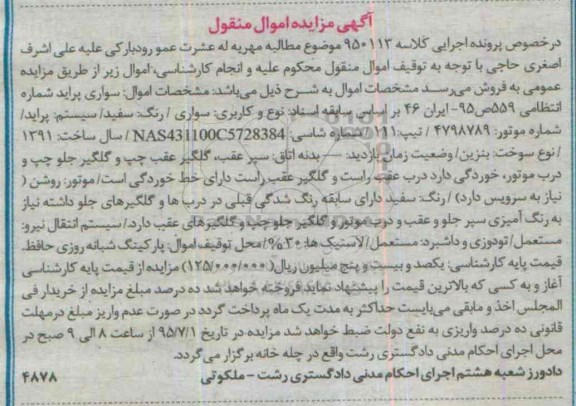 آگهی مزایده اموال منقول
درخصوص پرونده اجرایی کلاسه ۹۵۰۱۱۳ موضوع مطالبه مهریه له عشرت عمو رودبارکی علیه علی اشرف
اصغری حاجی با توجه به توقیف اموال منقول محکوم علیه و انجام کارشناسی، اموال زیر از طریق مزایده
عمومی به فروش می‌رسد مشخصات اموال به شرح ذیل می‌باشد: مشخصات اموال: سواری پراید شماره
انتظامی ۵۵۹ص۹۵- ایران ۴۶ بر اساس سابقه اسناد: نوع و کاربری: سواری / رنگ: سفید/ سیستم: پراید/
شماره موتور: ۴۷۹۸۷۸۹ / تیپ: ۱۱۱/ شماره شاسی: NAS431100C5728384 / سال ساخت: ۱۳۹۱
/ نوع سوخت: بنزین/ وضعیت زمان بازدید: — بدنه اتاق: سپر عقب، گلگیر عقب چپ و گلگیر جلو چپ و
درب موتور، خوردگی دارد درب عقب راست و گلگیر عقب راست دارای خط خوردگی است/ موتور: روشن (
نیاز به سرویس دارد) / رنگ: سفید دارای سابقه رنگ شدگی قبلی در درب ها و گلگیرهای جلو داشته نیاز
به رنگ آمیزی سپر جلو و عقب و درب موتور و گلگیر جلو چپ و گلگیرهای عقب دارد./ سیستم انتقال نیرو:
مستعمل/ تودوزی و داشبرد: مستعمل/ لاستیک ها: ۳۰%/ محل توقیف اموال: پارکینگ شبانه روزی حافظ.
قیمت پایه کارشناسی: یکصد و بیست و پنج میلیون ریال (۱۲۵/۰۰۰/۰۰۰) مزایده از قیمت پایه کارشناسی
آغاز و به کسی که بالاترین قیمت را پیشنهاد نماید فروخته خواهد شد ده درصد مبلغ مزایده از خریدار فی
المجلس اخذ و مابقی می‌بایست حداکثر به مدت یک ماه پرداخت گردد در صورت عدم واریز مبلغ درمهلت
قانونی ده درصد واریزی به نفع دولت ضبط خواهد شد مزایده در تاریخ ۹۵/۷/۱ از ساعت ۸ الی ۹ صبح در
محل اجرای احکام مدنی دادگستری رشت واقع در چله خانه برگزار می‌گردد.
دادورز شعبه هشتم اجرای احکام مدنی دادگستری رشت – ملکوتی ۴۸۷۸